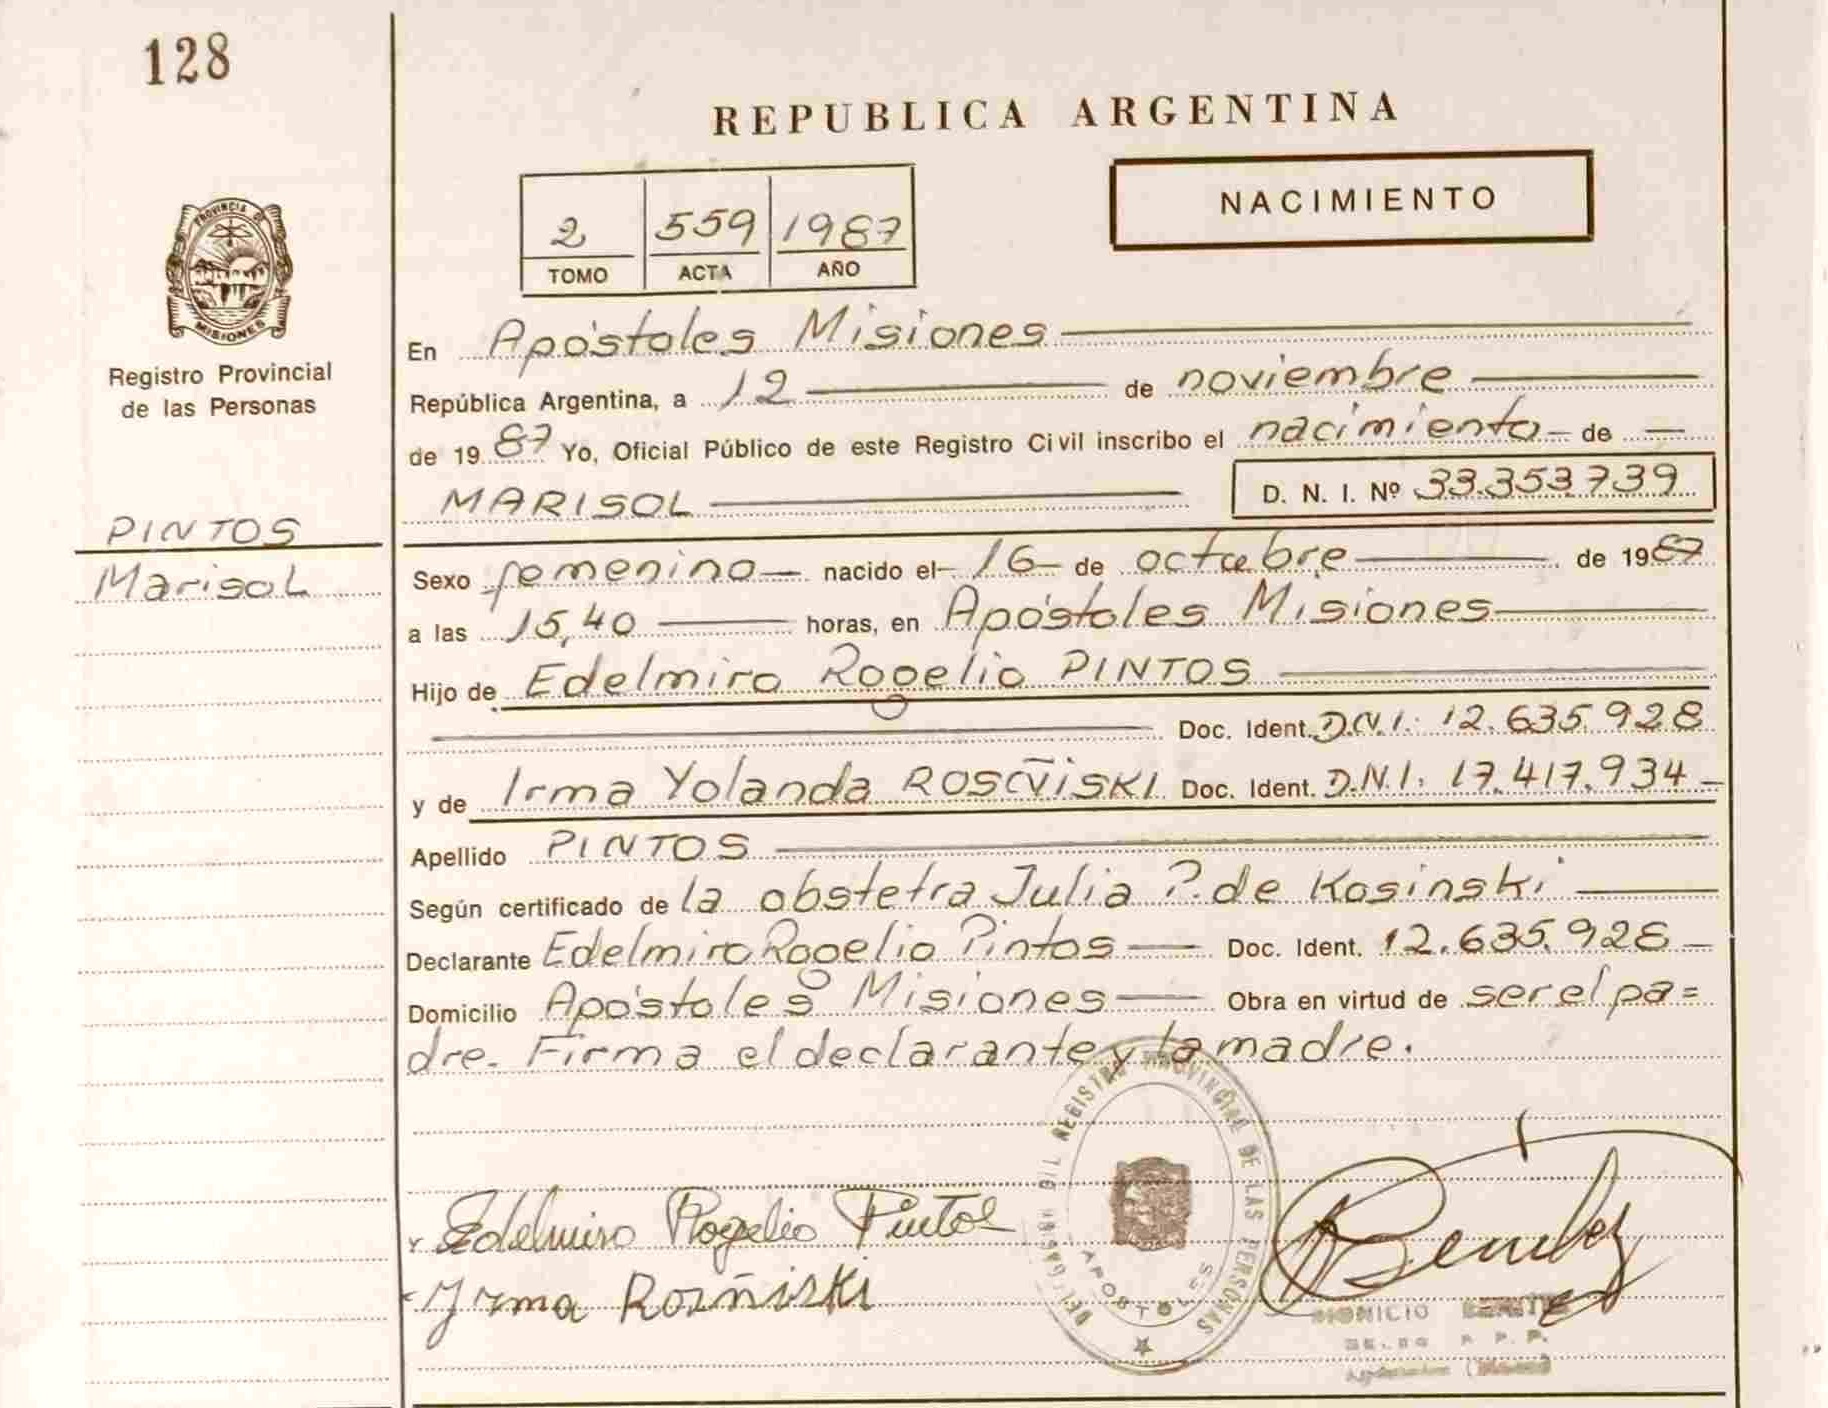 128
REPUBLICA ARGENTINA
NACIMIENTO
2 559 1987
TOMO ACTA AÑO
PROVINCIA DE
MISIONES
Registro Provincial
de las Personas
PINTOS
Marisol
En Apóstoles Misiones
República Argentina, a 12 de noviembre
de 1987 Yo, Oficial Público de este Registro Civil inscribo el nacimiento de
MARISOL D. N. I. Nº 33.353.739
Sexo femenino nacido el 16 de octubre de 1987
a las 15,40 horas, en Apóstoles Misiones
Hijo de Edelmiro Rogelio PINTOS
Doc. Ident. D.N.I: 12.635.928
y de Irma Yolanda ROSÑISKI Doc. Ident. D.N.I: 17.417.934
Apellido PINTOS
Según certificado de la obstetra Julia P. de Kosinski
Declarante Edelmiro Rogelio Pintos Doc. Ident. 12.635.928
Domicilio Apóstoles Misiones Obra en virtud de ser el pa=
dre. Firma el declarante y la madre.
REGISTRO PROVINCIAL DE LAS PERSONAS
APOSTOLES
Edelmiro Rogelio Pintos
Irma Rozñiski
Benitez
BENITEZ